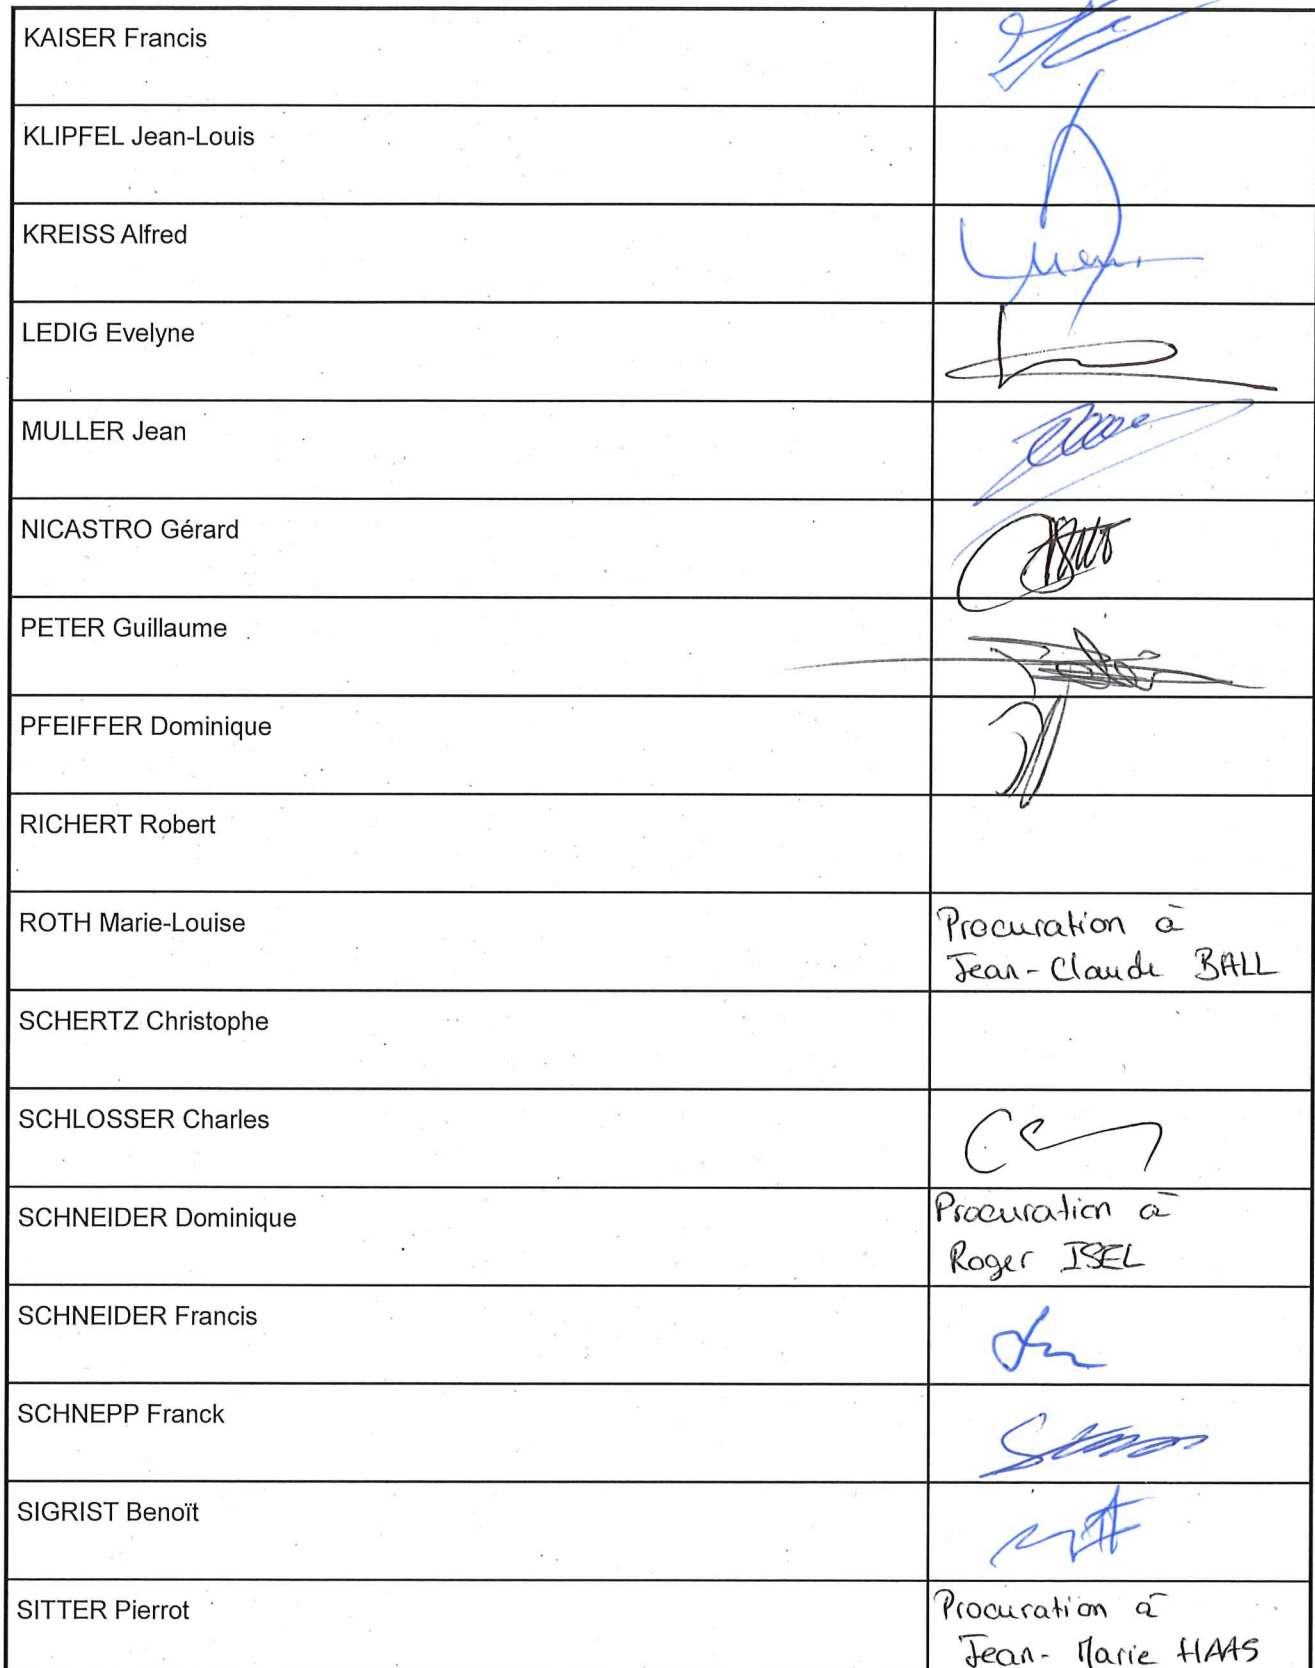 KAISER Francis
KLIPFEL Jean-Louis
KREISS Alfred
LEDIG Evelyne
MULLER Jean
NICASTRO Gérard
PETER Guillaume
PFEIFFER Dominique
RICHERT Robert
ROTH Marie-Louise
Procuration à
Jean-Claude BALL
SCHERTZ Christophe
SCHLOSSER Charles
SCHNEIDER Dominique
Procuration à
Roger ISEL
SCHNEIDER Francis
SCHNEPP Franck
SIGRIST Benoït
SITTER Pierrot
Procuration à
Jean-Marie HAAS